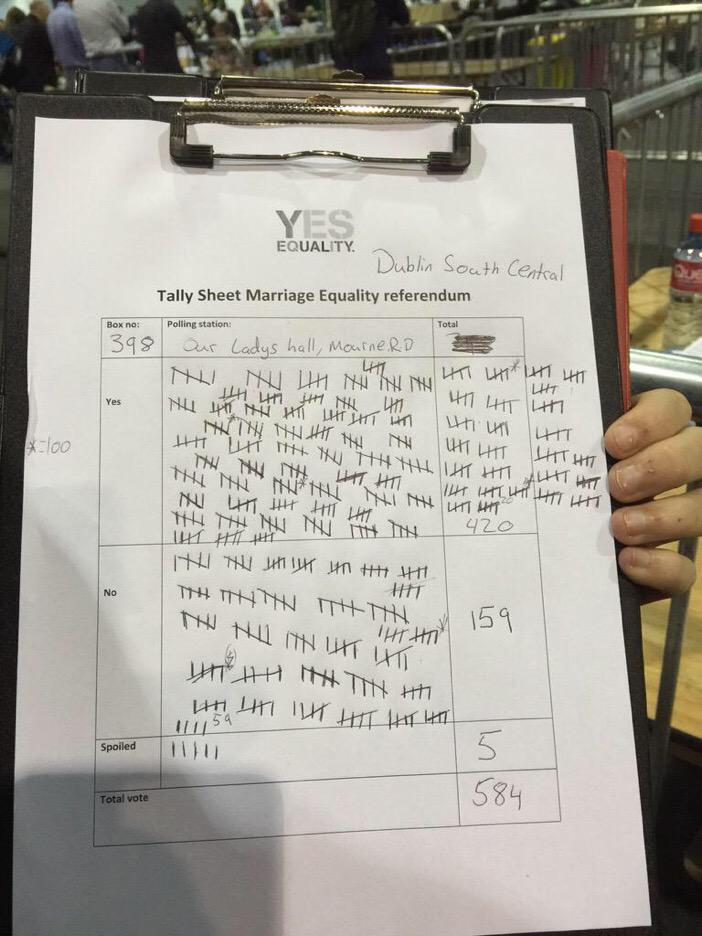 YES
EQUALITY.
Dublin South Central
Tally Sheet Marriage Equality referendum
Box no: Polling station: Total
398 Our Ladys hall, Mourne RD
Yes
*=100
20
420
No
159
59
Spoiled
5
Total vote 584